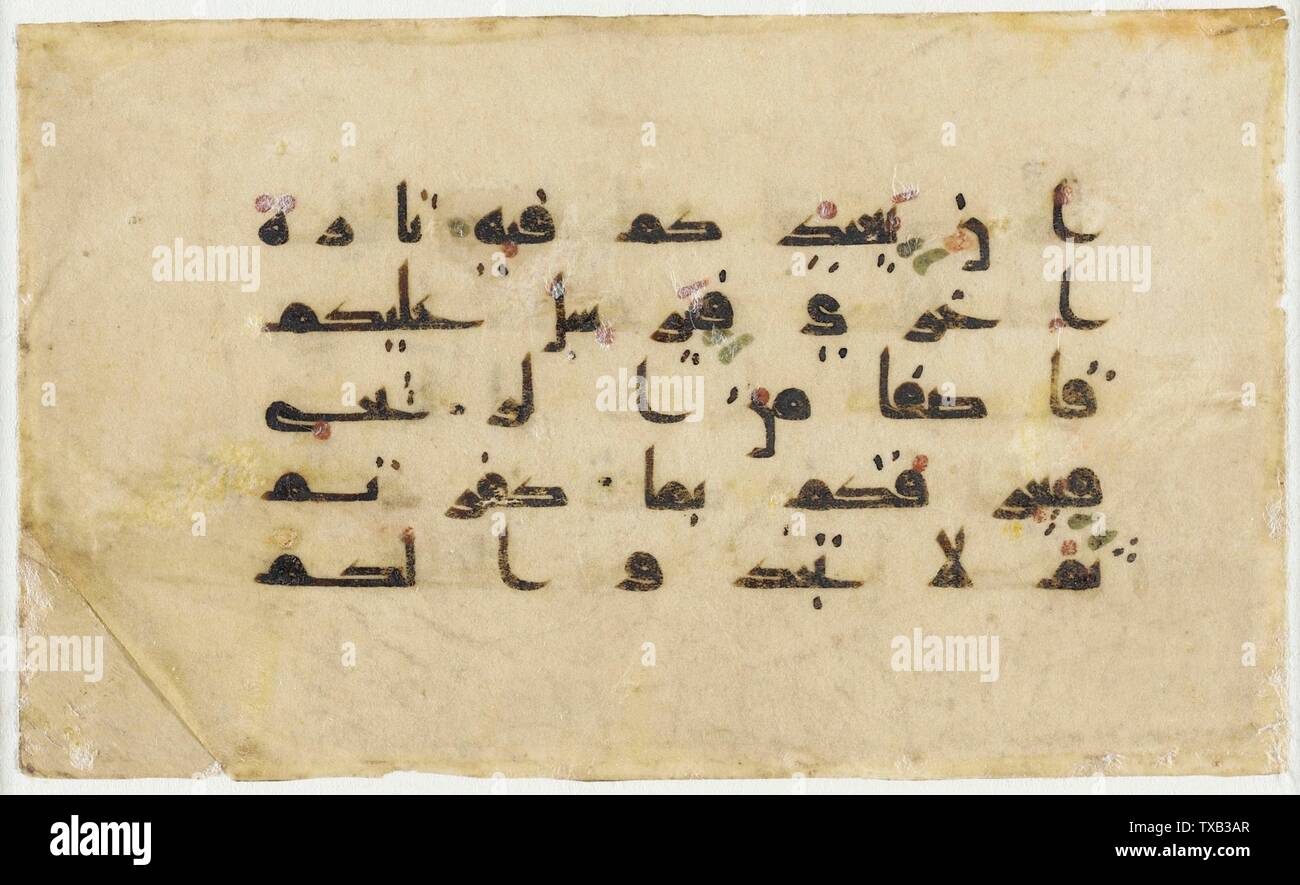 ان يعيدكم فيه تارة
اخرى فيرسل عليكم
قاصفا من الريح
فيغرقكم بما كفرتم
ثم لا تجدوا لكم
alamy
Image ID: TXB3AR
www.alamy.com